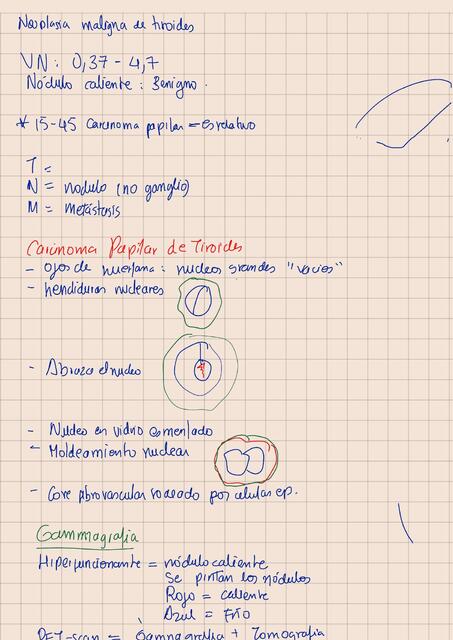 Neoplasia maligna de tiroides
VN: 0,37 - 4,7
Nódulo caliente: Benigno.
* 15-45 Carcinoma papilar = es relativo
T =
N = nodulo (no ganglio)
M = metástasis
Carcinoma Papilar de Tiroides
- ojos de huerfana: nucleos grandes "vacios"
- hendiduras nucleares
- Abraza el nucleo
- Nucleo en vidrio esmerilado
- Moldeamiento nuclear
- Core fibrovascular rodeado por celulas ep.
Gammografia
Hiperfuncionante = nódulo caliente
Se pintan los nódulos
Rojo = caliente
Azul = Frío
PET-scan = Gammagrafia + Tomografia